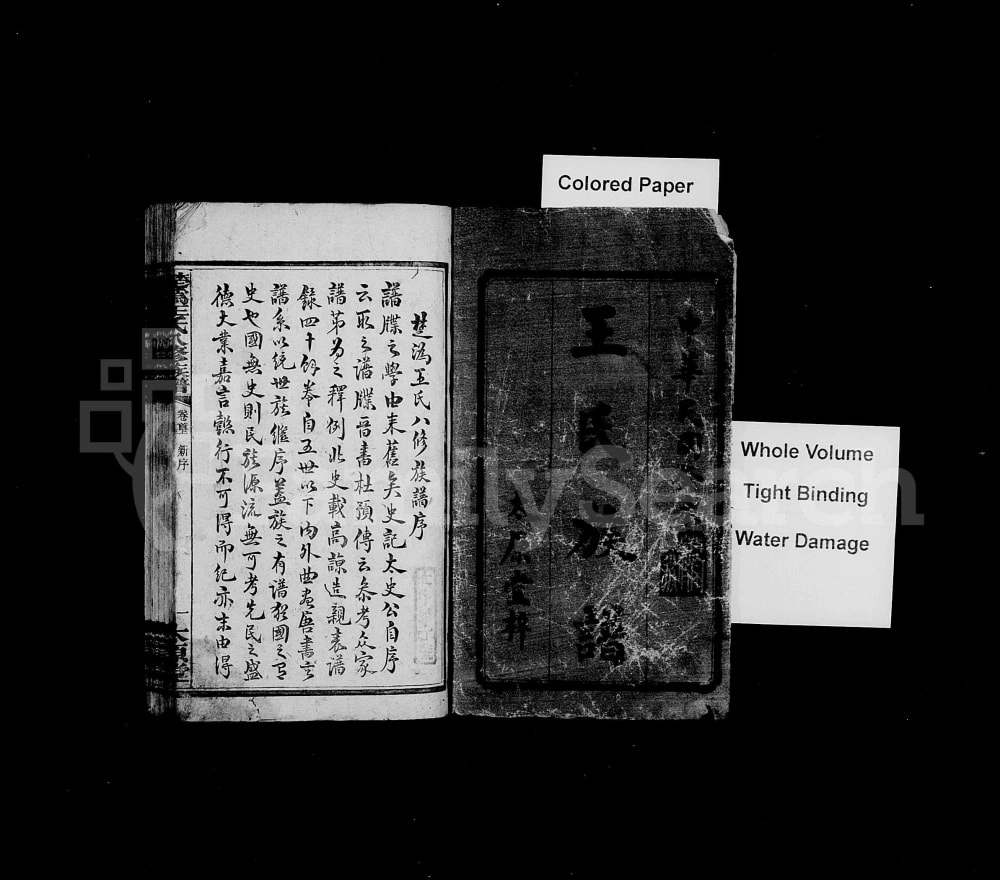 Colored Paper
Whole Volume
Tight Binding
Water Damage
FamilySearch
中華民國
王氏族譜
太原堂梓
楚溈王氏八修族譜序
譜牒之學由來舊矣史記太史公自序
云取之譜牒晉書杜預傳云參考众家
譜第為之釋例北史載高諒造親表譜
錄四十餘卷自五世以下內外曲盡唐書言
譜系以統世族繼序蓋族之有譜猶國之有
史也國無史則民族源流無可考先民之盛
德大業嘉言懿行不可得而紀亦末由得
楚溈王氏八修族譜
新序